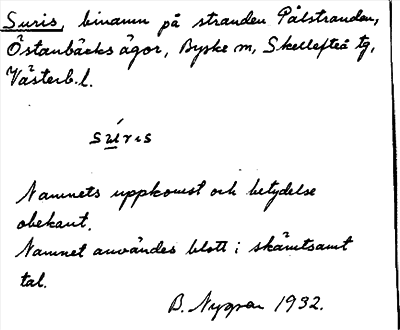 Suris, binamn på stranden Pålstranden,
Östanbäcks ägor, Byske sn, Skellefteå tg,
Västerb. l.
súrıs
Namnets uppkomst och betydelse
obekant.
Namnet användes blott i skämtsamt
tal.
B. Nygren 1932.